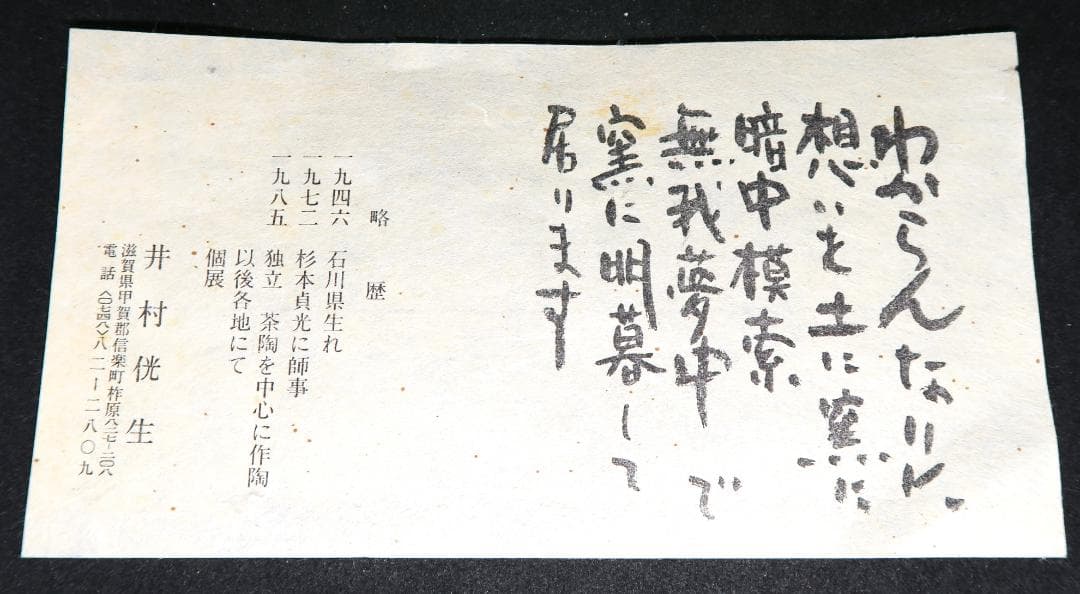 わからんなりに、
想いを土に窯に
暗中模索、
無我夢中で
窯に明暮して
居ります
略歴
一九四六 石川県生れ
一九七二 杉本貞光に師事
一九八五 独立 茶陶を中心に作陶
以後各地にて
個展
井村侊生
滋賀県甲賀郡信楽町柞原八二七−二〇八
電話〈〇七四八〉八二−二八〇九